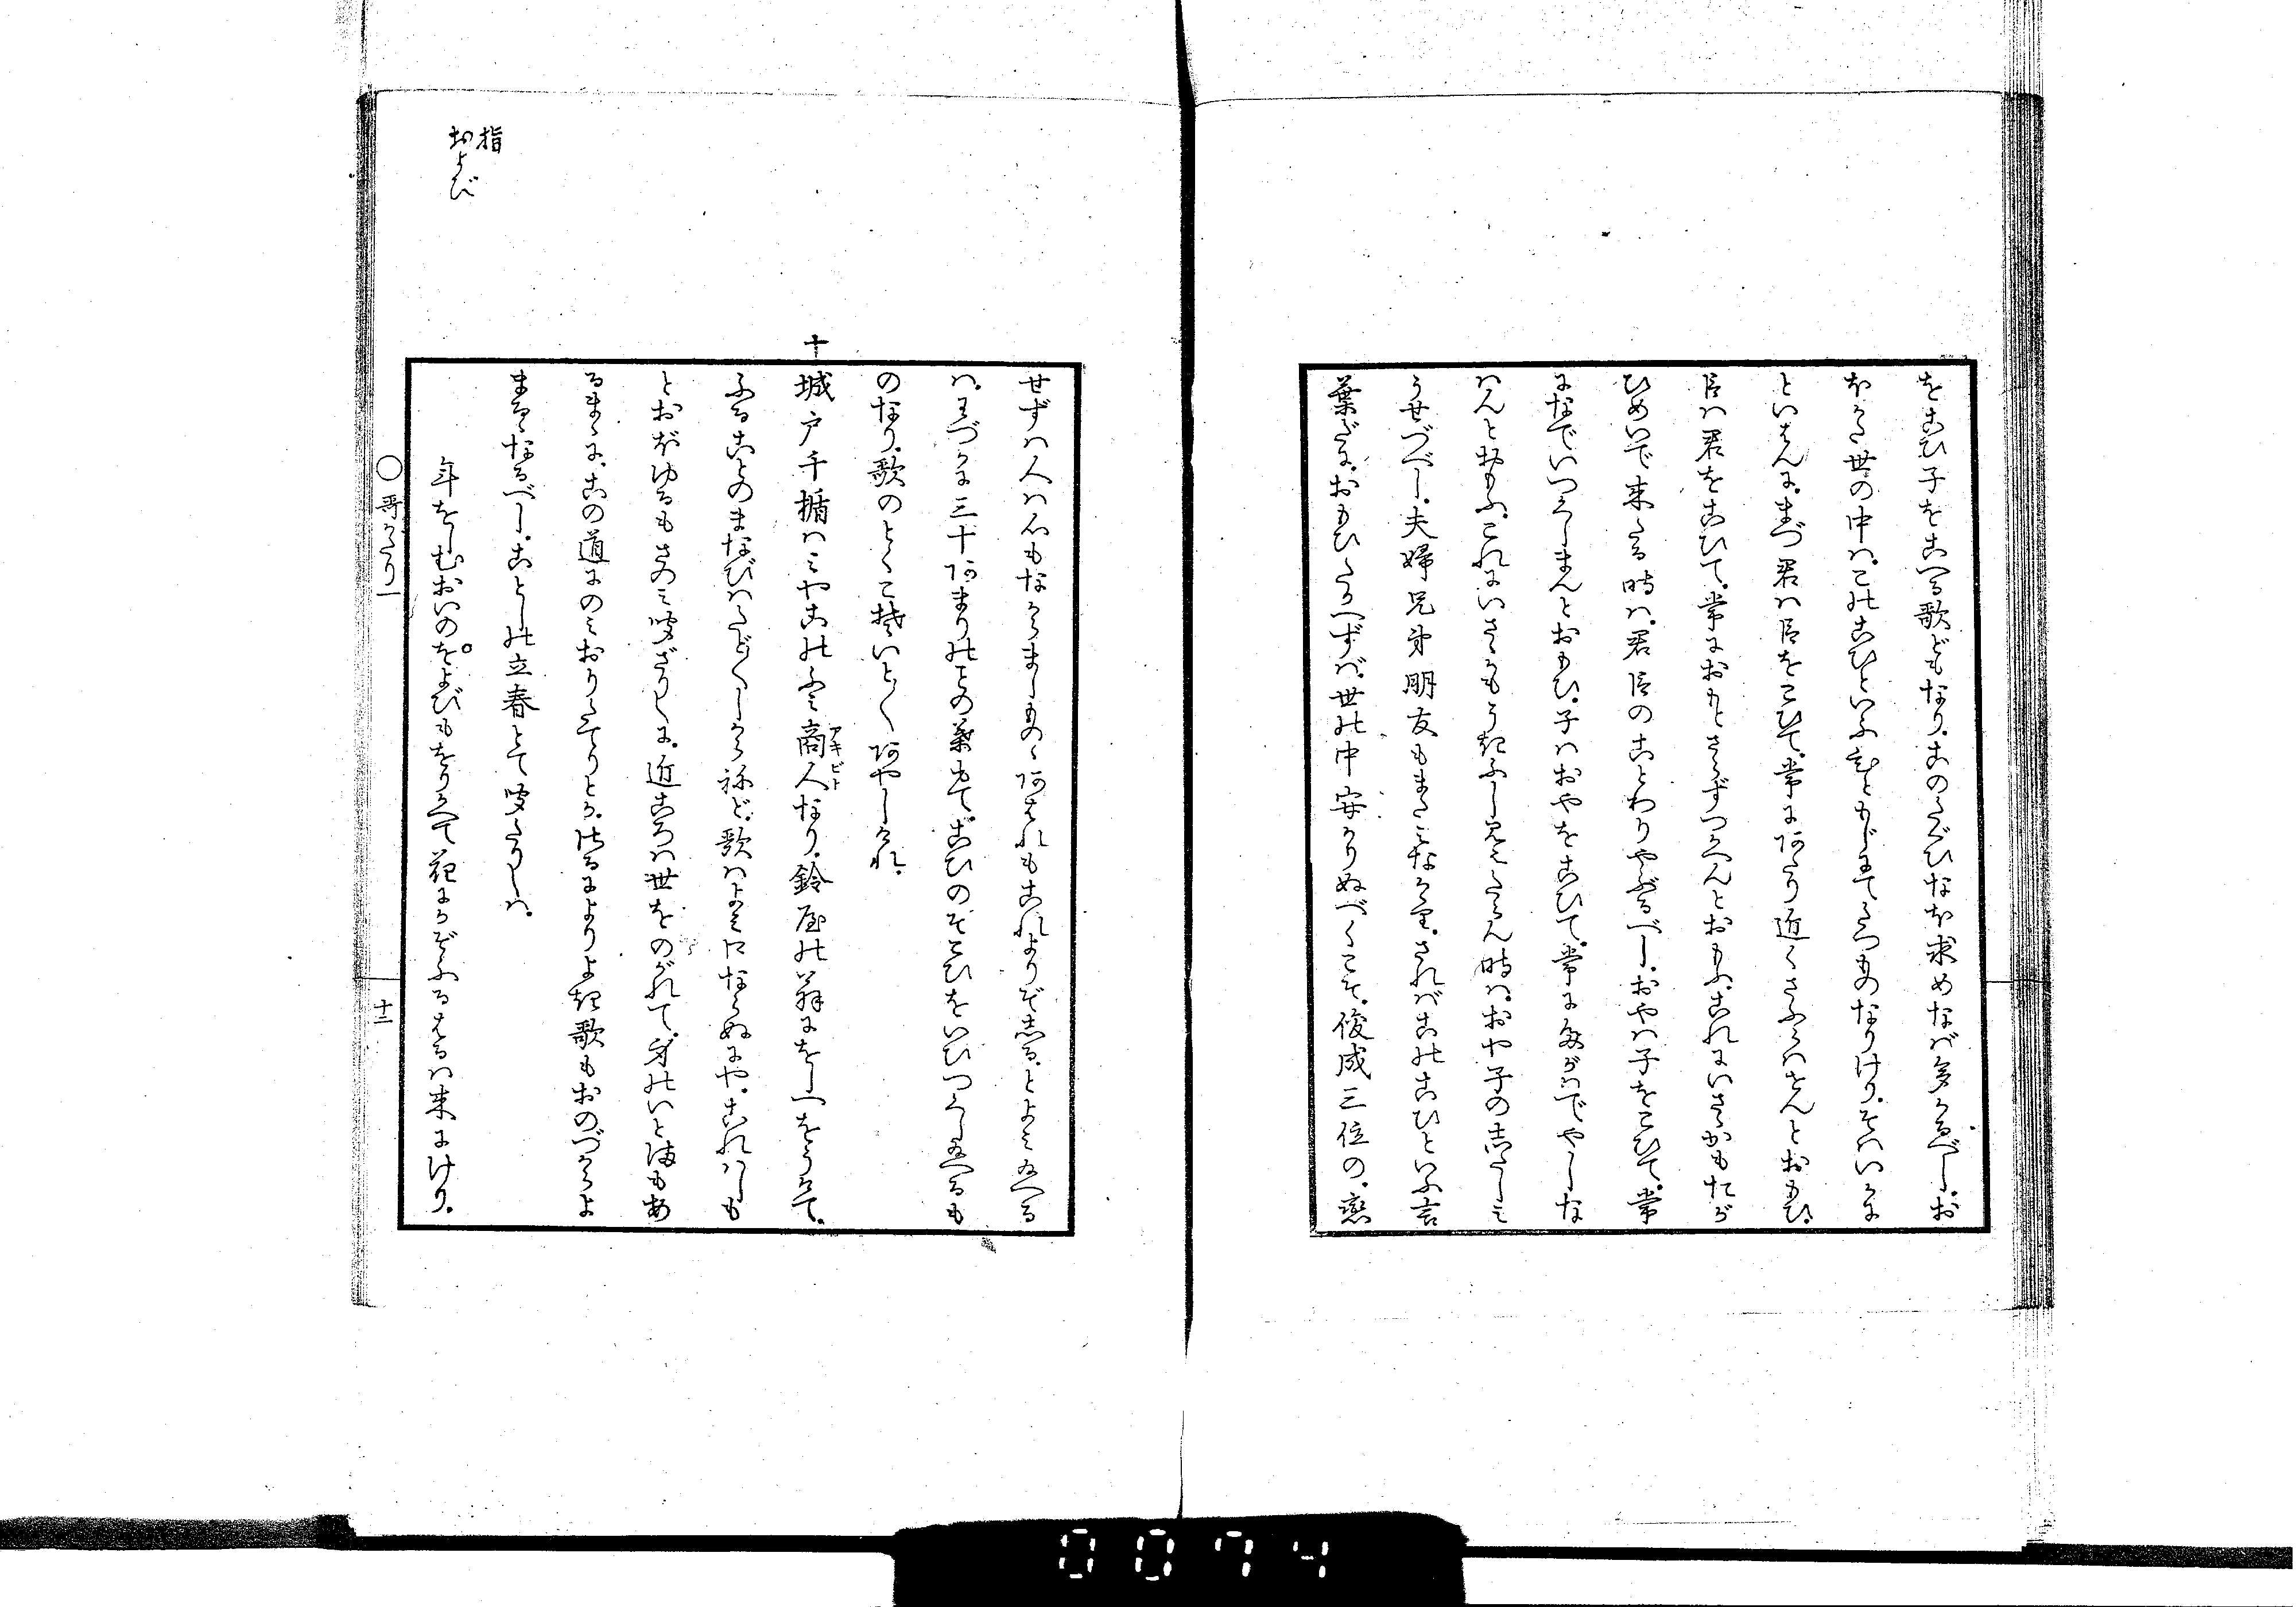 をこひ子をこへる歌どもなり。このたぐひなほ求めなば多かるべし。お
ほかた世の中は。このこひといふもとだてたつものなりけり。そはいかに
といはんに。まづ君は臣をこひて。常にあたり近くさふらはせんとおもひ。
臣は君をこひて。常におもとさらずつかへんとおもふ。これにいさゝかもたが
ひめいで来たる時は。君臣のことわりやぶるべし。おやは子をこひて。常
になでいつくしまんとおもひ。子はおやをこひて。常にたがはでやしな
はんとおもふ。これにいさゝかもうきふし見えたらん時は。おや子のしたしみ
うせつべし。夫婦兄弟朋友もまたみなかり。さればこのこひといふ言
葉だに。おもひたがへずば。世の中安かりぬべくこそ。俊成三位の。恋
せずは人は心もなからましものゝあはれもこれよりぞしる。とよみ玉へる
は。わづかに三十あまりの言の葉もて。こひのそこひをいひつくし玉へるも
のなり。歌のとくこそいと〳〵あやしけれ。
十
城戸千楯はみやこのふみ商人なり。鈴屋の翁にをしへをうけて。
アキビト
ふることのまなびはたど〳〵しからねど。歌はよみ口ならぬにや。これはしも
とおぼゆるもさのみ聞ざりしに。近ごろは世をのがれて。身のいとまもあ
るまゝに。この道にのみおりたてりとか。けるによりよき歌もおのづからよ
まるゝなるべし。ことしの立春とて聞たりしは。
年をしむおいのをよびもをりかへて花にかぞふるはるは来にけり。
指
および
○哥がたり一
十二
0074